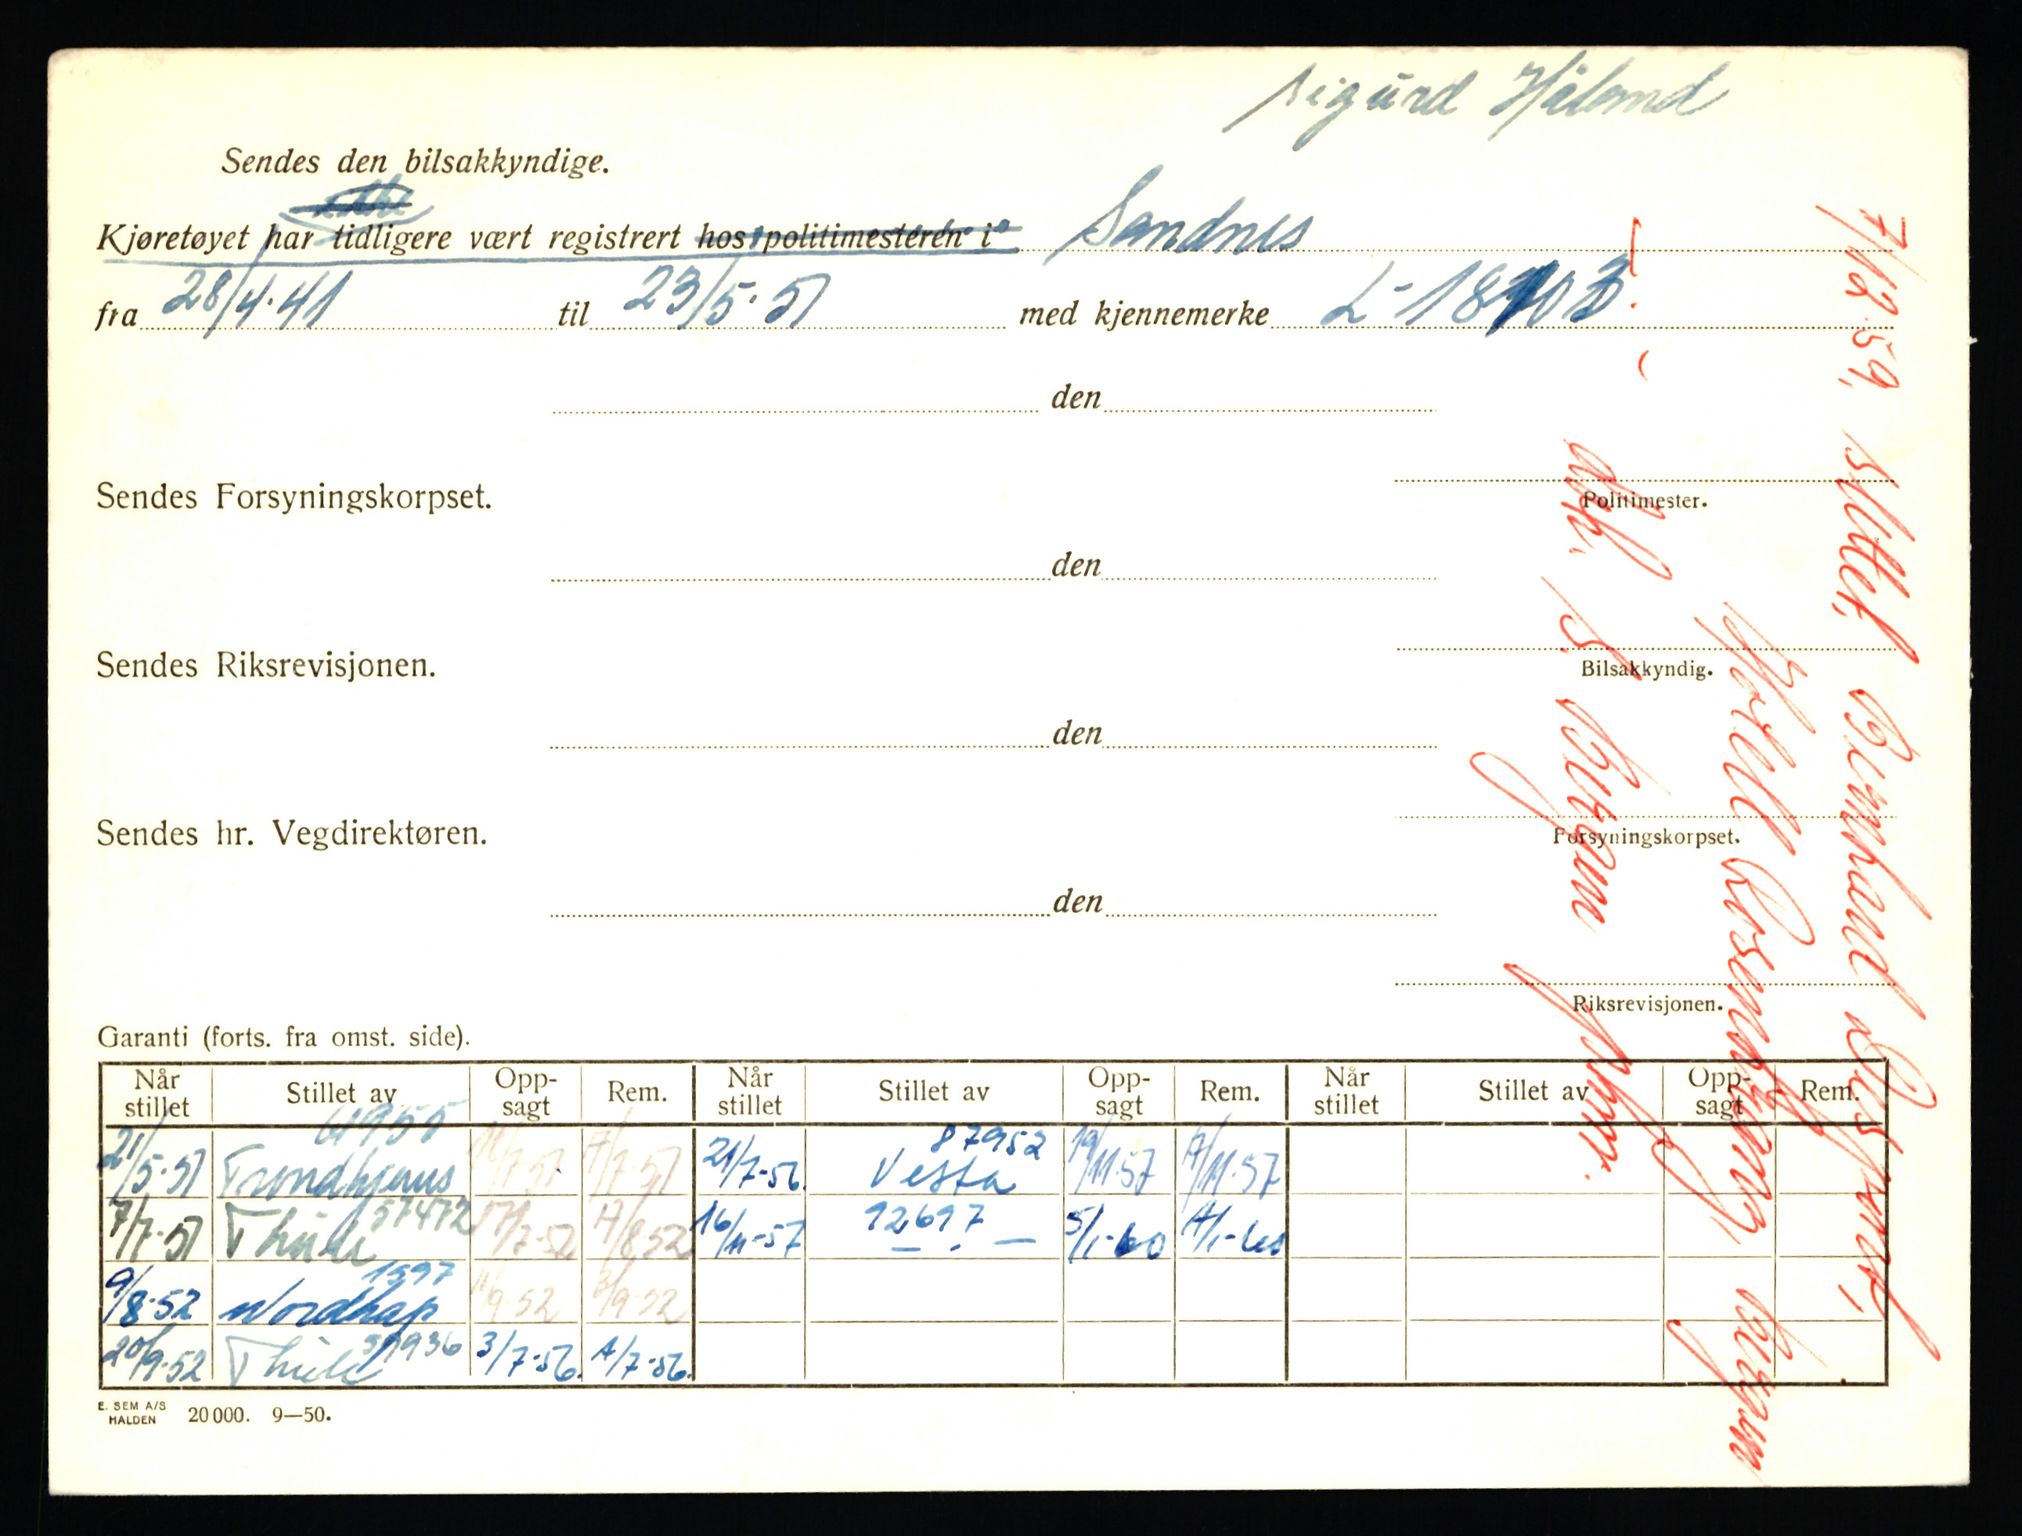 Sigurd Håland
Sendes den bilsakkyndige.
Kjøretøyet har tidligere vært registrert hos politimesteren i Sandnes
fra 28/4.41 til 23/5.51 med kjennemerke L-18103
den
Politimester.
Sendes Forsyningskorpset.
den
Bilsakkyndig.
Sendes Riksrevisjonen.
den
Forsyningskorpset.
Sendes hr. Vegdirektøren.
den
Riksrevisjonen.
7/12.59,
Garanti (forts. fra omst. side).
Når stillet Stillet av Opp-sagt Rem. Når stillet Stillet av Opp-sagt Rem. Når stillet Stillet av Opp-sagt Rem.
21/5.51 Trondhjems 61955 /7.51 /7.51 21/7-56. Vesta 87952 19/11.57 A/11.57
7/7.51 Thule 57472 /7.52 A/8.52 16/11-57 92697 — . — 5/1-60 A/1-60
9/8.52 Nordkap 1597 /9.52 /9.52
20/9.52 Thule 3/7-56. A/7-56.
E. SEM A/S HALDEN 20000. 9—50.